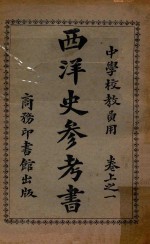 中學校教員用
卷上之一
西洋史參考書
商務印書館出版